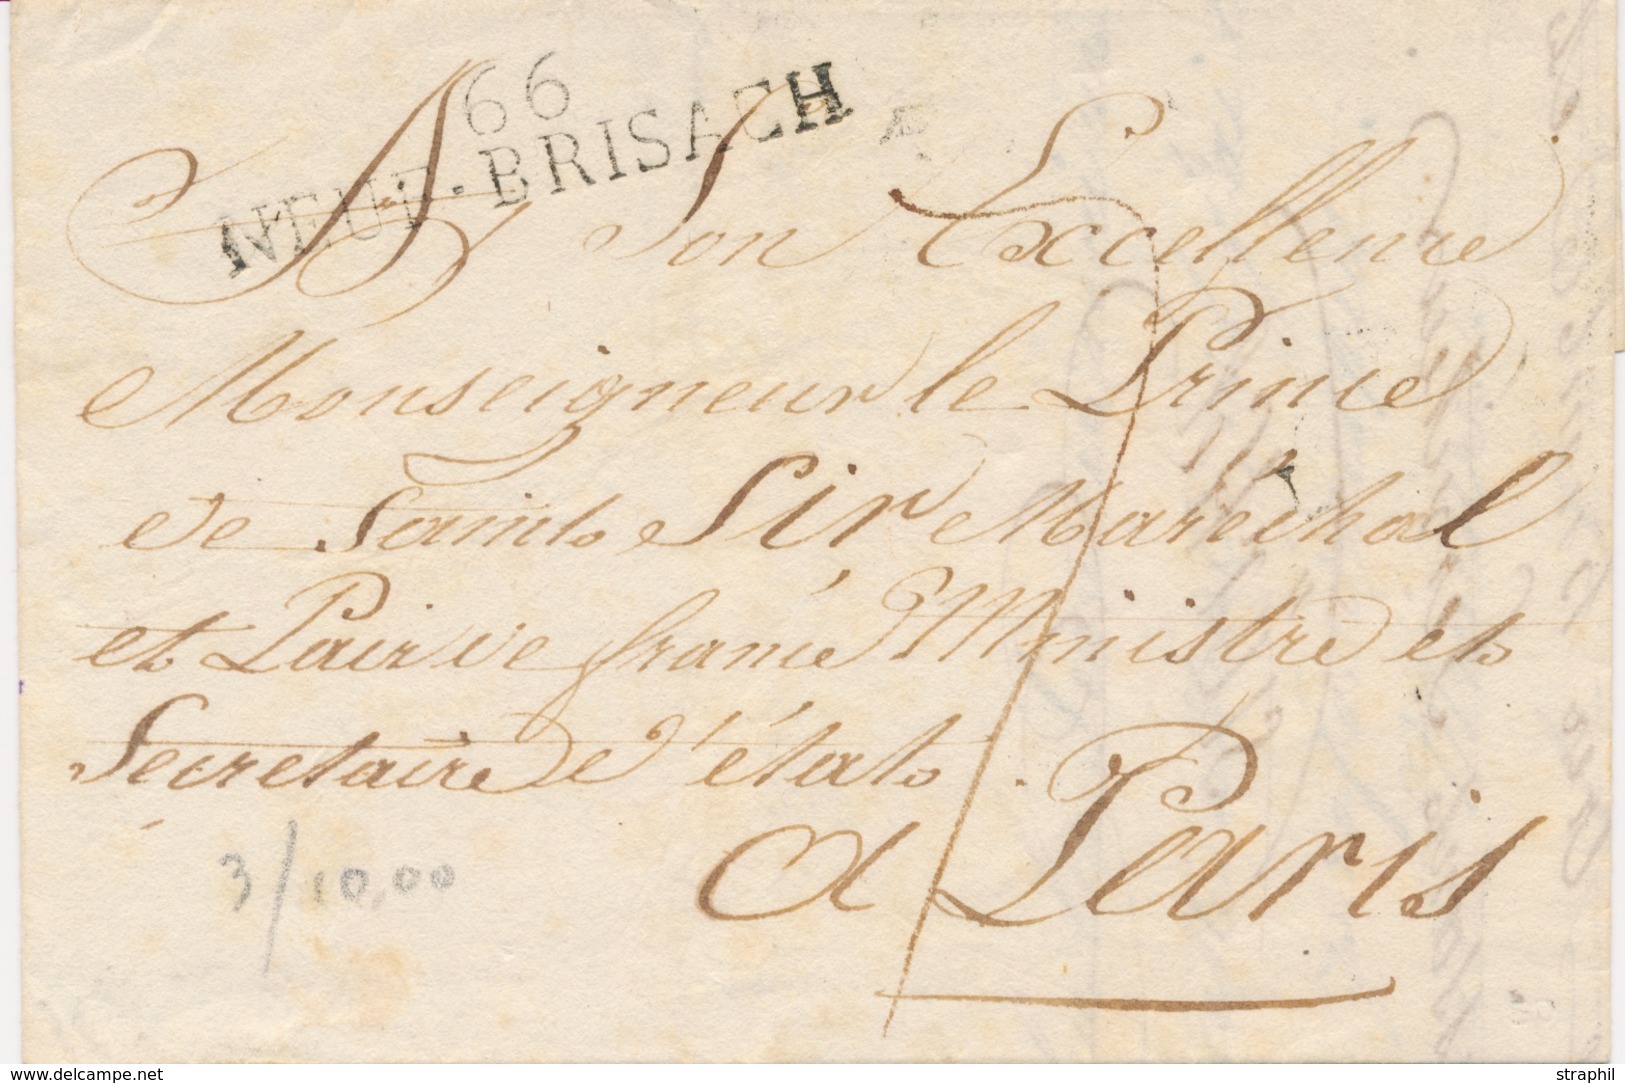 66
NEUF-BRISACH
A Son Excellence
Monseigneur le Prince
de Saint Sir Marechal
et Pair de france Ministre et
Secretaire d'état
a Paris
3/10,00
www.delcampe.net
straphil